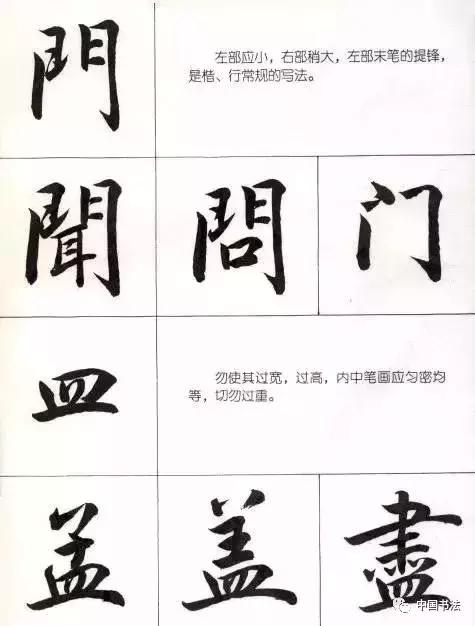 門
左部应小，右部稍大，左部末笔的提锋，
是楷、行常规的写法。
聞 問 门
皿
勿使其过宽，过高，内中笔画应匀密均
等，切勿过重。
孟 盖 盡
中国书法